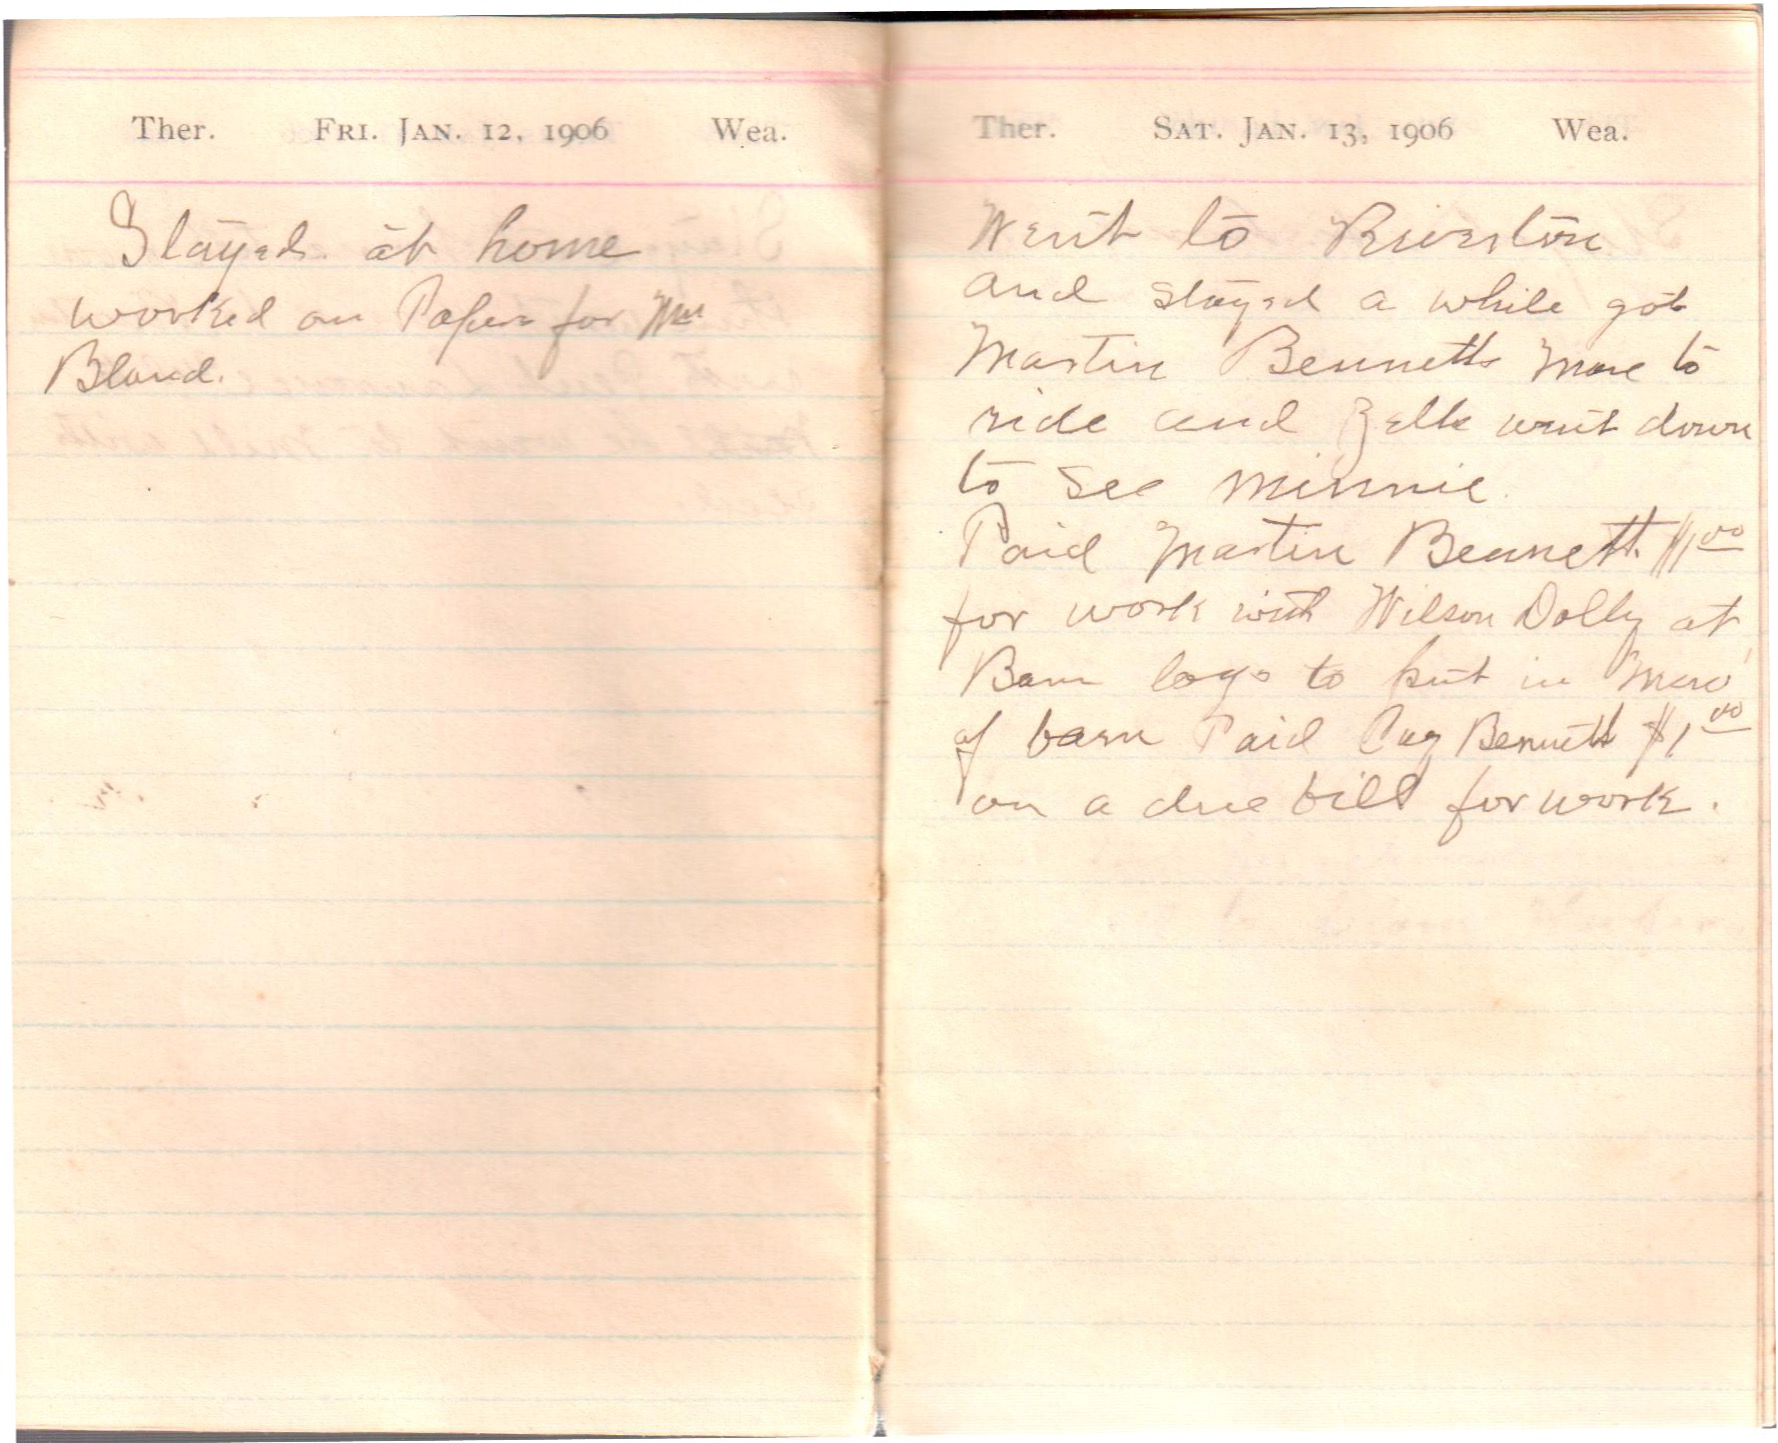 Ther. FRI. JAN. 12, 1906 Wea.
Stayed at home
worked on Papers for Wm
Bland.
Ther. SAT. JAN. 13, 1906 Wea.
Went to Riverton
and stayed a while got
Martin Bennetts Mare to
ride and went down
to see Minnie.
Paid Martin Bennett $1.00
for work with Wilson Dolly at
Barn logs to put in
of barn Paid Bennett $1.00
on a due bill for work.